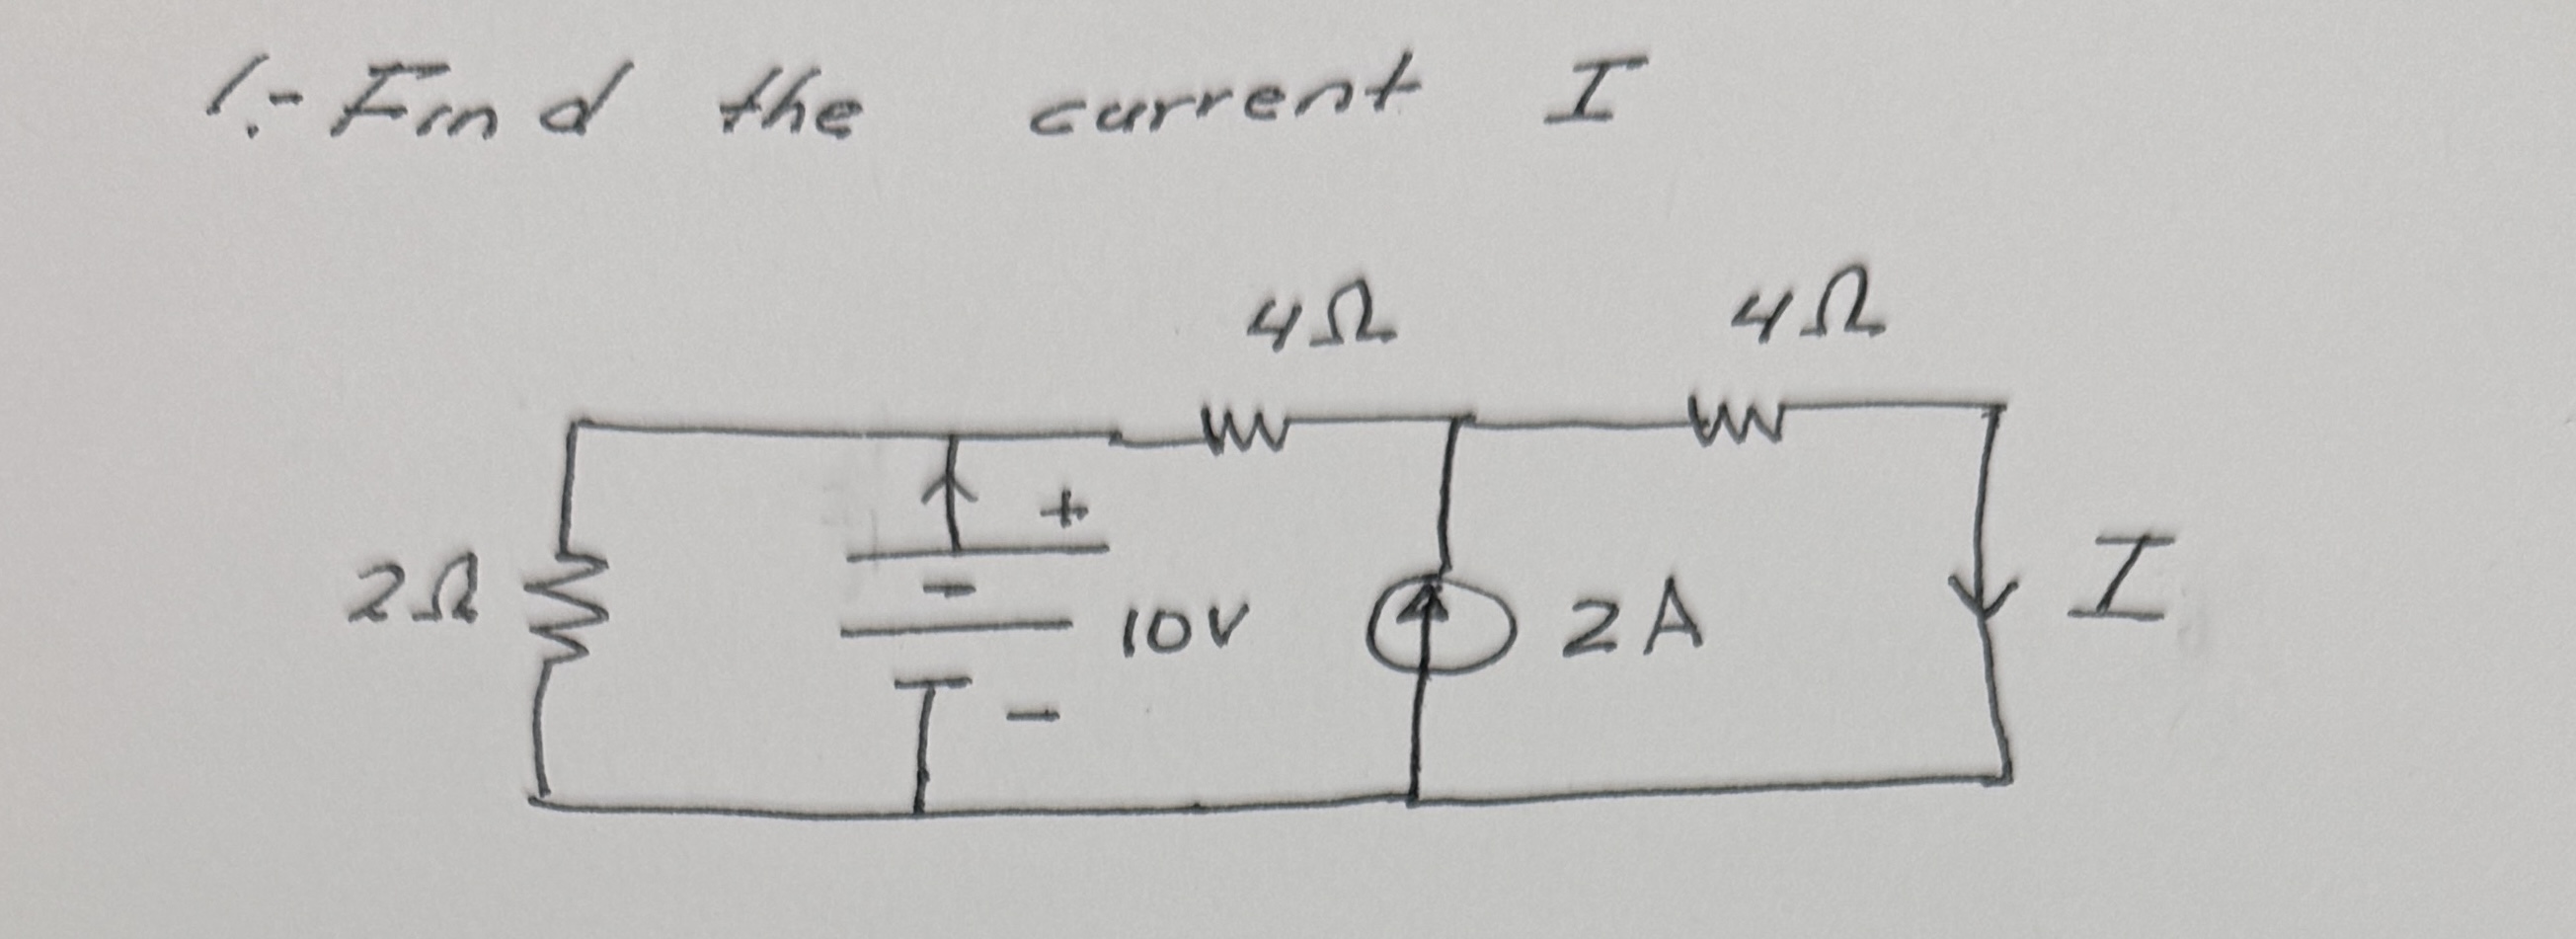 1.- Find the current I
4Ω 4Ω
+
-
2Ω 10V 2A I
-